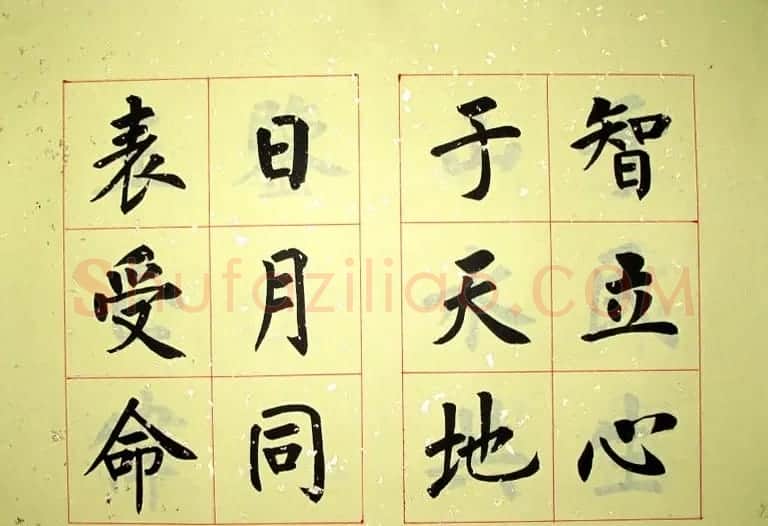 智立心
于天地
日月同
表受命
Shufaziliao.COM